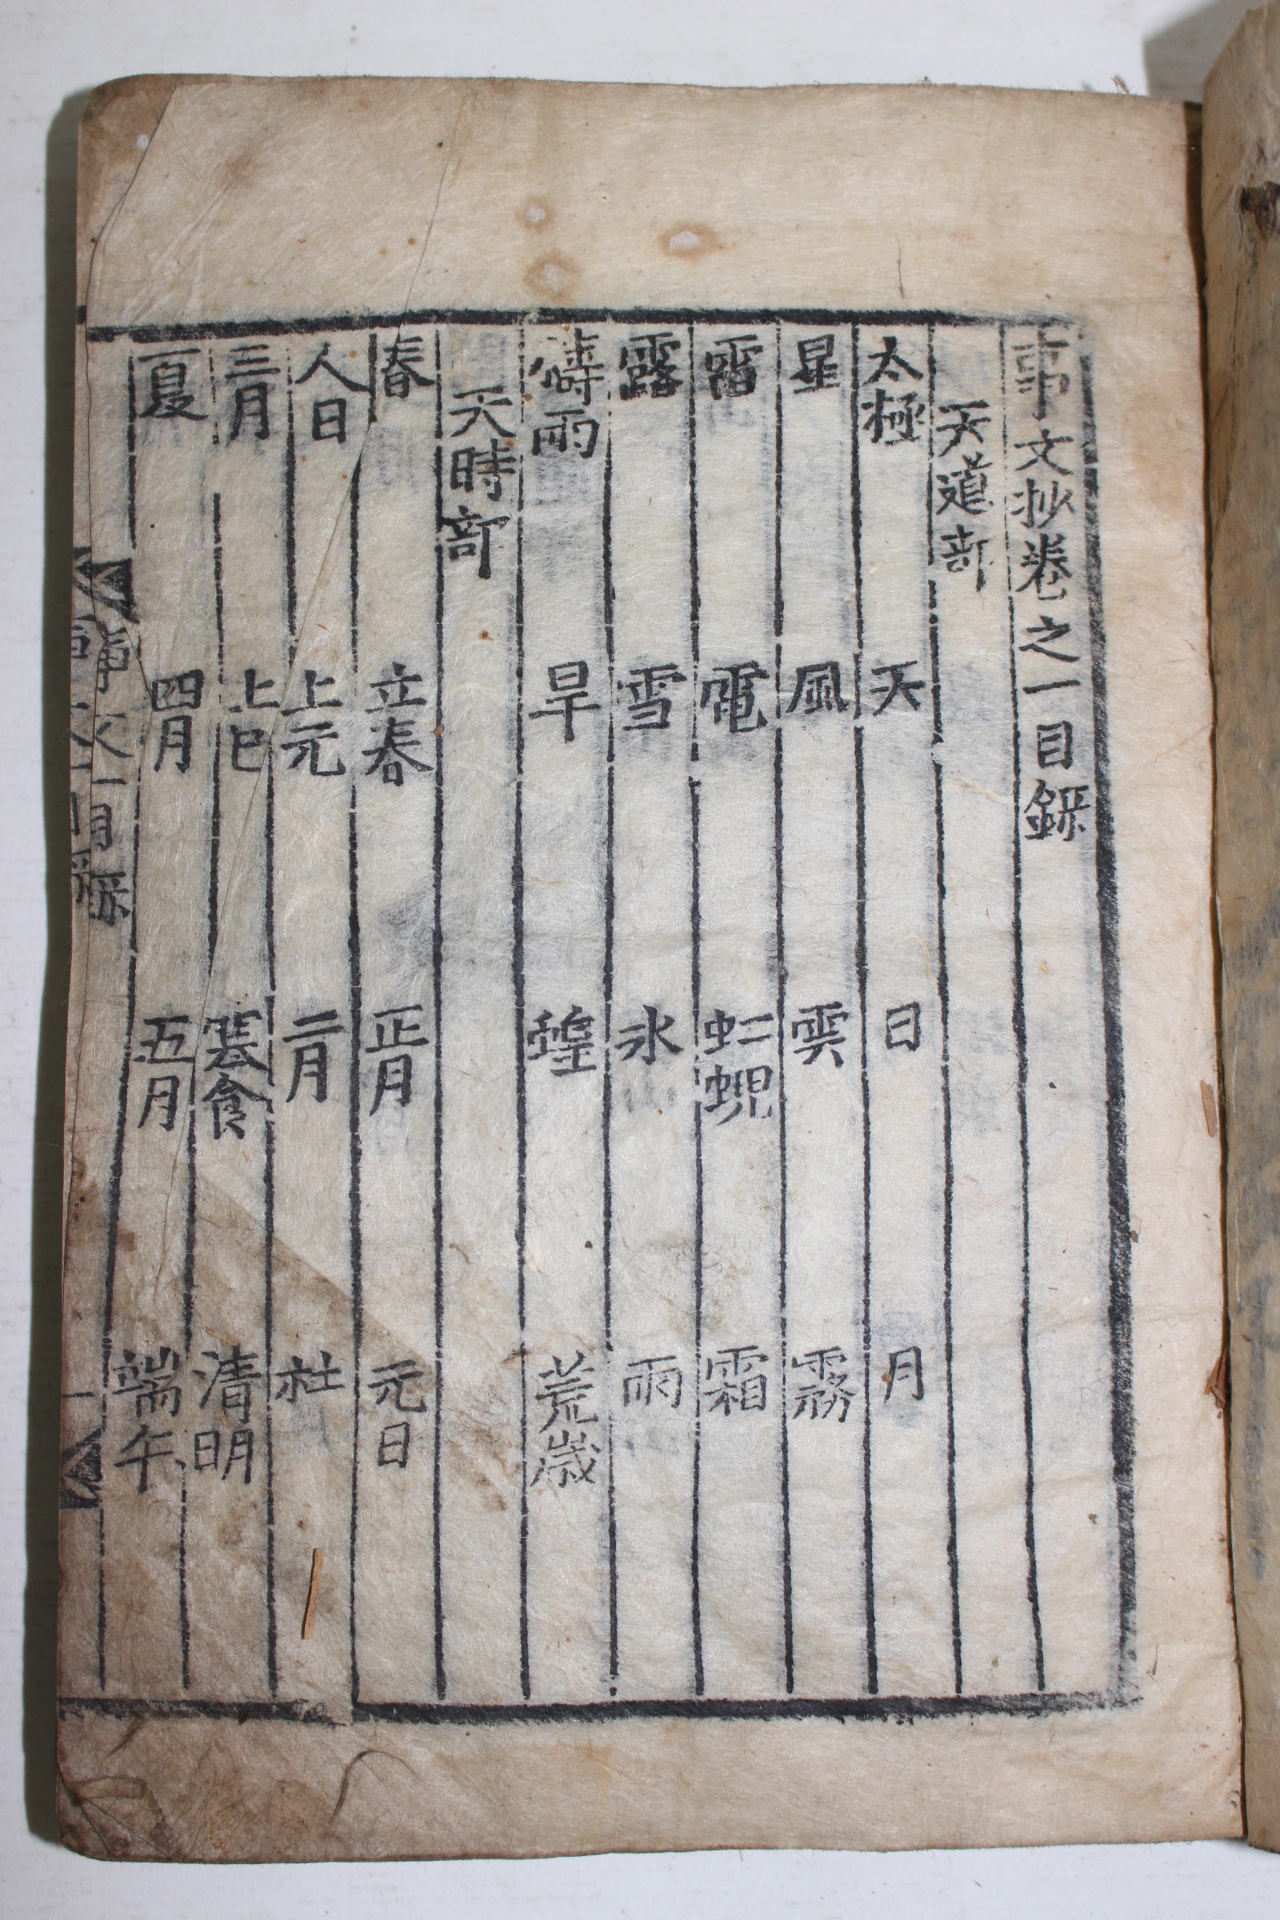 事文抄卷之一目録
天道部
太極 天 日 月
星 風 雲 霧
雷 電 虹蜺 霜
露 雪 氷 雨
禱雨 旱 蝗 荒歲
天時部
春 立春 正月 元日
人日 上元 二月 社
三月 上巳 寒食 清明
夏 四月 五月 端午
事文一目録